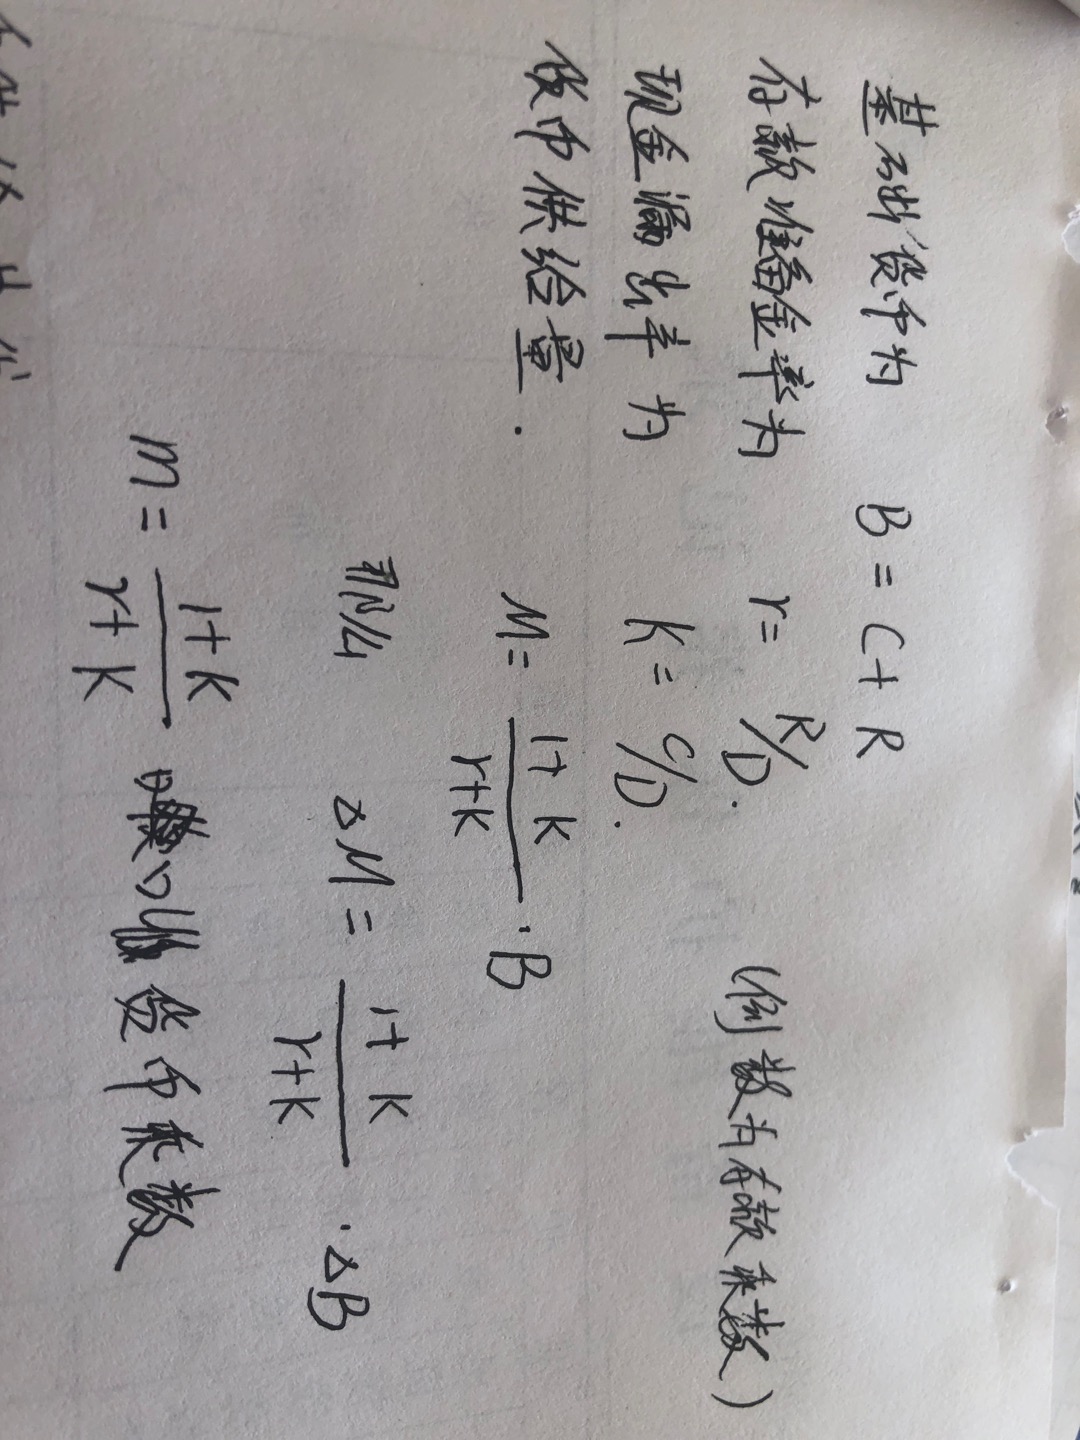 基础货币为 B = C + R
存款准备金率为 r = R/D. (倒数为存款乘数)
现金漏出率为 k = C/D.
货币供给量. M = (1+k)/(r+k) · B
那么 ΔM = (1+k)/(r+k) · ΔB
m = (1+k)/(r+k) 货币乘数